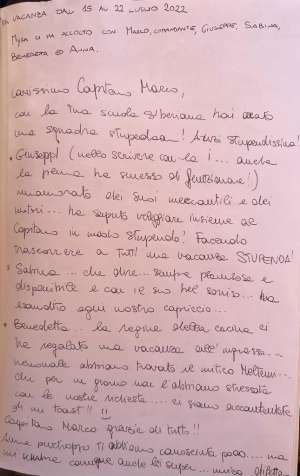 IN VACANZA DAL 15 AL 22 LUGLIO 2022
MYRA CI HA ACCOLTO CON MARCO, COMANDANTE, GIUSEPPE, SABINA,
BENEDETTA E ANNA.
Carissimo Capitano Marco,
con la tua scuola siberiana hai creato
una squadra stupenda! Anzi stupendissima!
Giusepp! (nello scrivere con la i... anche
la penna ha smesso di funzionare!)
innamorato dei suoi mercantili e dei
motori... ha saputo viaggiare insieme al
Capitano in modo stupendo! Facendo
trascorrere a tutti una vacanza STUPENDA!
Sabina... che dire... sempre premurosa e
disponibile e con il suo bel sorriso... ha
esaudito ogni nostro capriccio...
Benedetta... la regina della cucina ci
ha regalato una vacanza all'ingrasso...
nonostante abbiamo trovato il mitico Meltemi...
che per un giorno non l'abbiamo stressata
con le nostre richieste.... ci siamo accontentate
di un toast!! !!
Capitano Marco grazie di tutto!!
Anna purtroppo ti abbiamo conosciuta poco.... ma